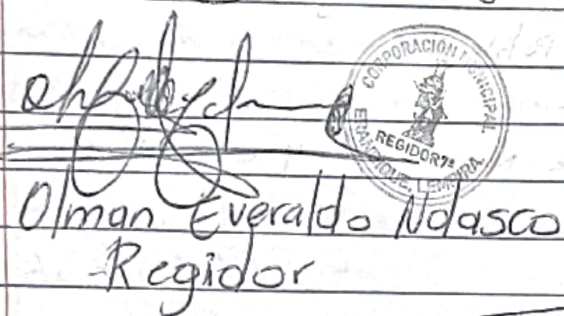 CORPORACION MUNICIPAL
REGIDOR 7º
ERANDIQUE, LEMPIRA.
Olman Everaldo Nolasco
Regidor